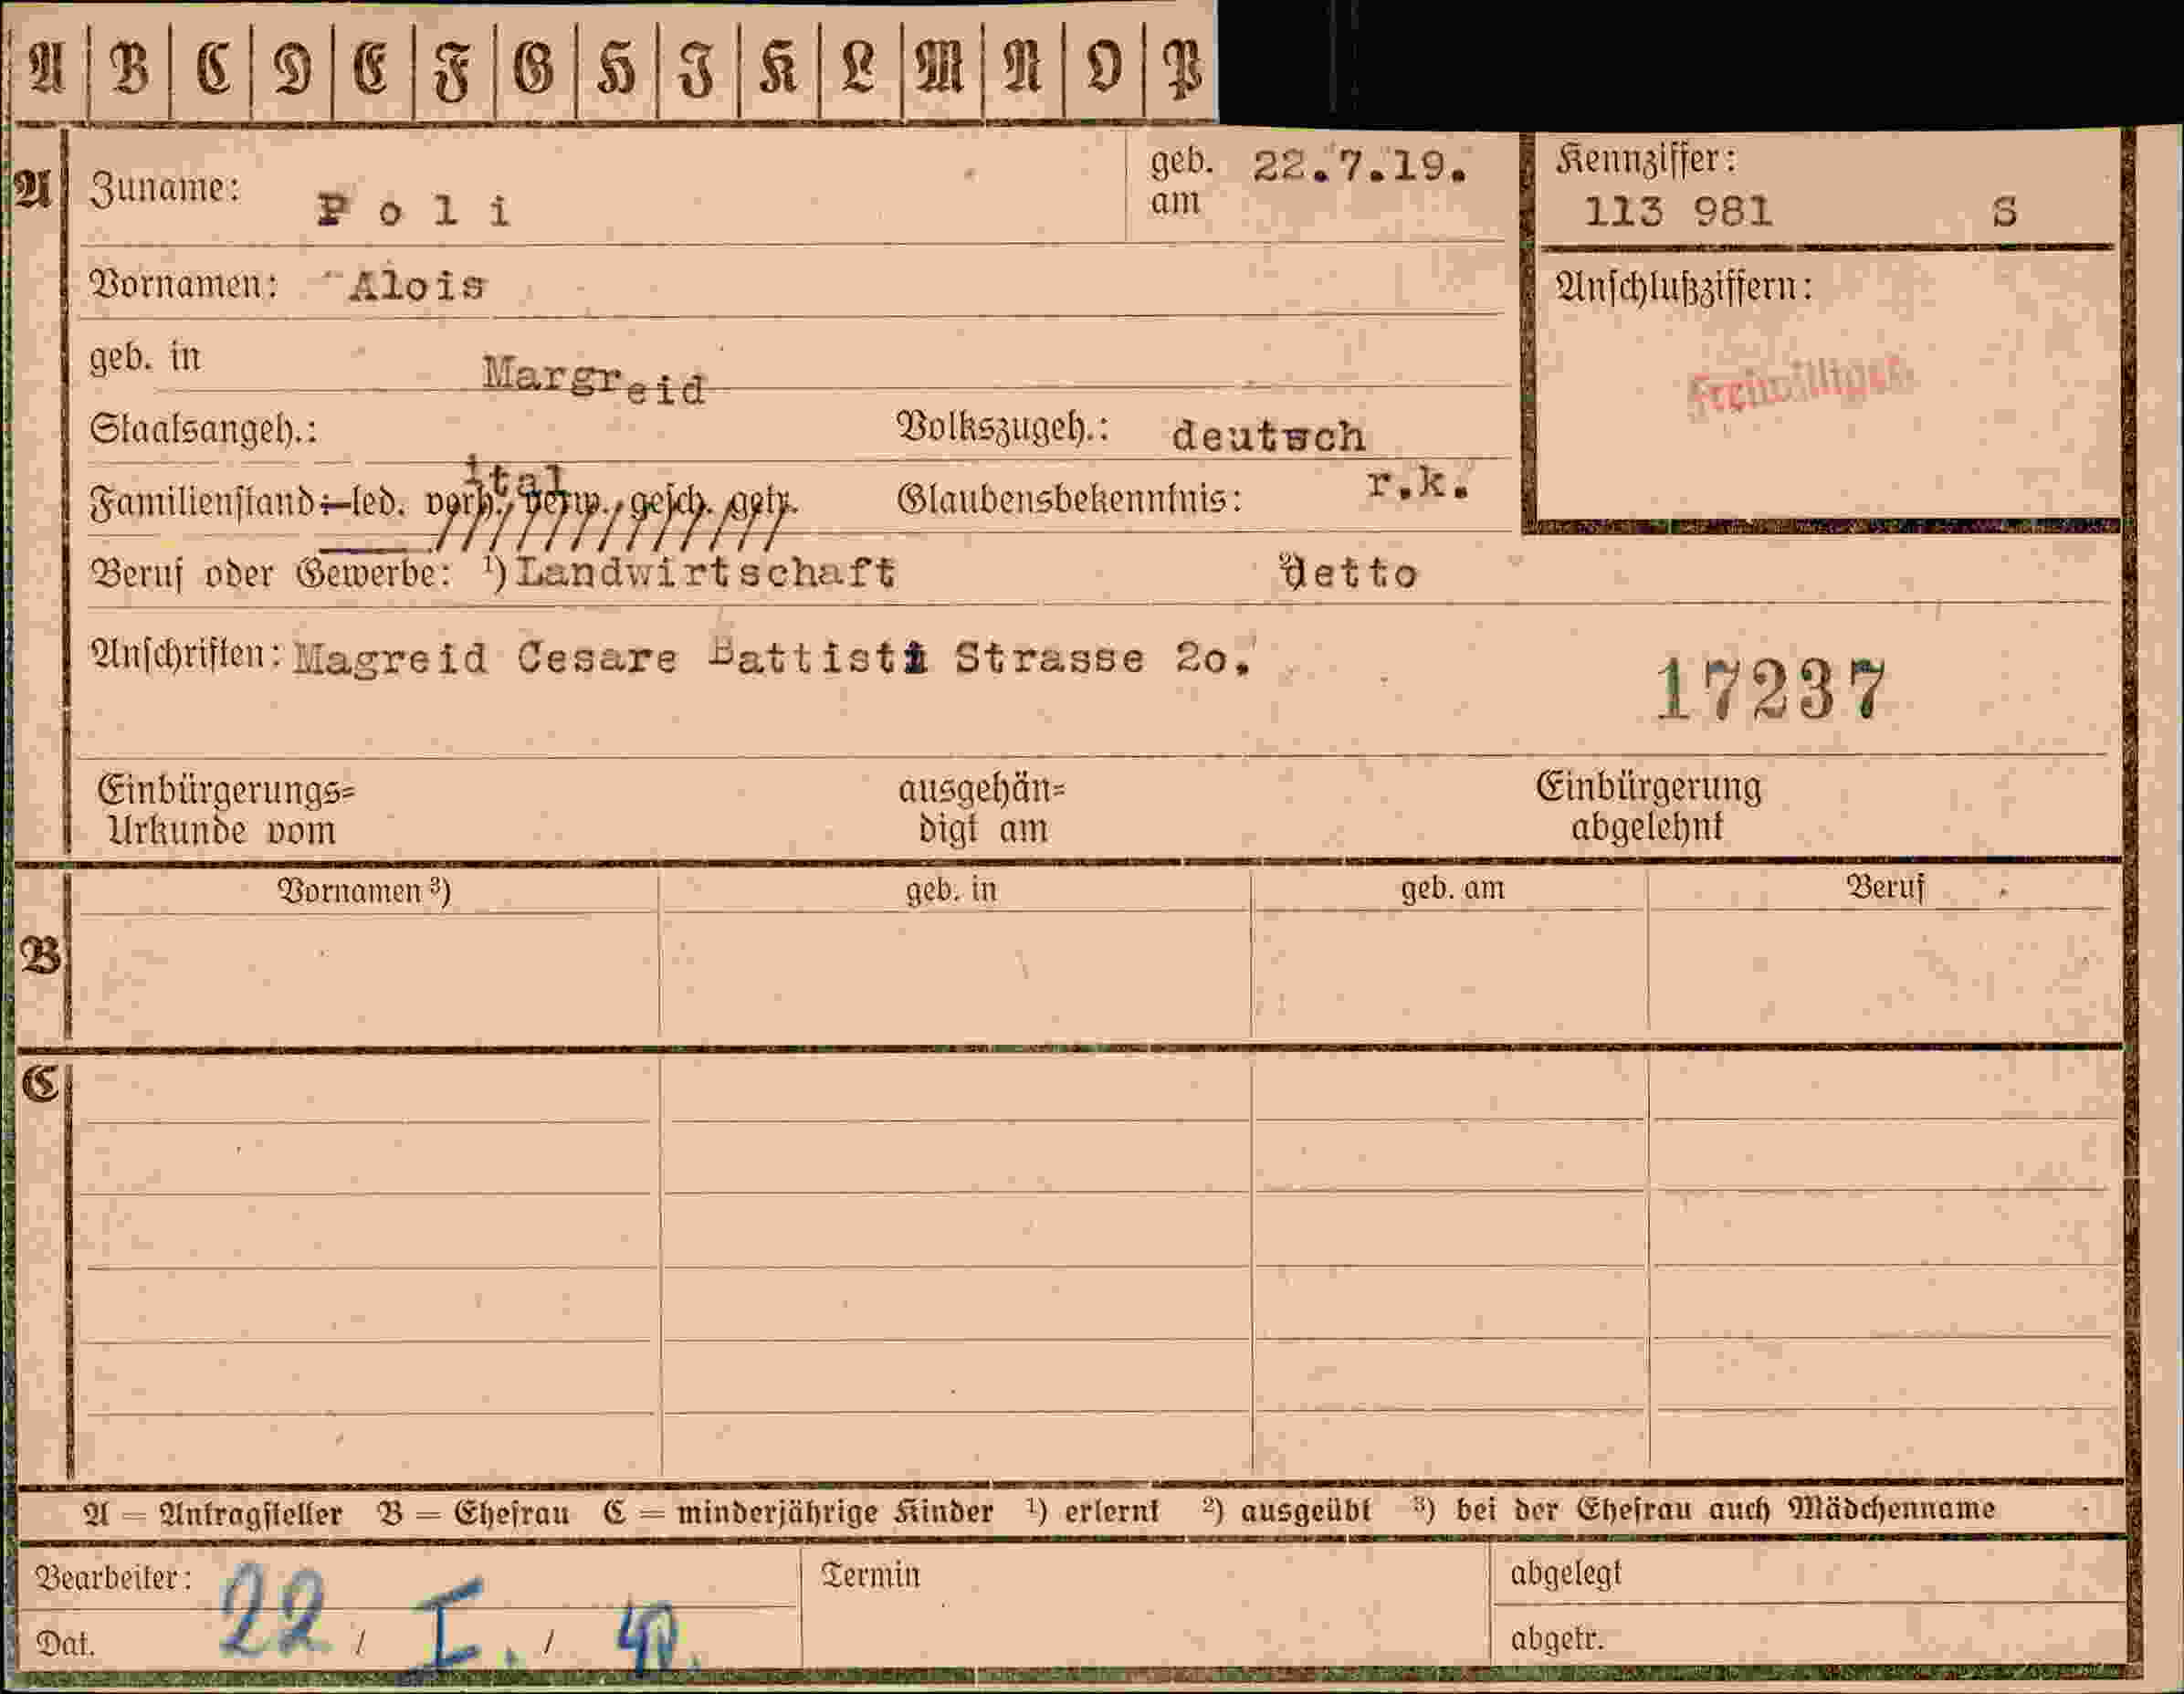 A B C D E F G H I K L M N O P
A Zuname: Poli geb. am 22.7.19. Kennziffer: 113 981 S
Vornamen: Alois Anschlußziffern:
geb. in Margreid Freiwilliger
Staatsangeh.: ital Volkszugeh.: deutsch
Familienstand: led. verh., verw., gesch. getr. Glaubensbekenntnis: r.k.
Beruf oder Gewerbe: ¹) Landwirtschaft ²) detto
Anschriften: Magreid Cesare Battisti Strasse 2o.
17237
Einbürgerungs=
Urkunde vom
ausgehän=
digt am
Einbürgerung
abgelehnt
Vornamen ³) geb. in geb. am Beruf
B
C
A = Antragsteller B = Ehefrau C = minderjährige Kinder ¹) erlernt ²) ausgeübt ³) bei der Ehefrau auch Mädchenname
Bearbeiter: Termin abgelegt
Dat. 22 / I. / 40. abgetr.